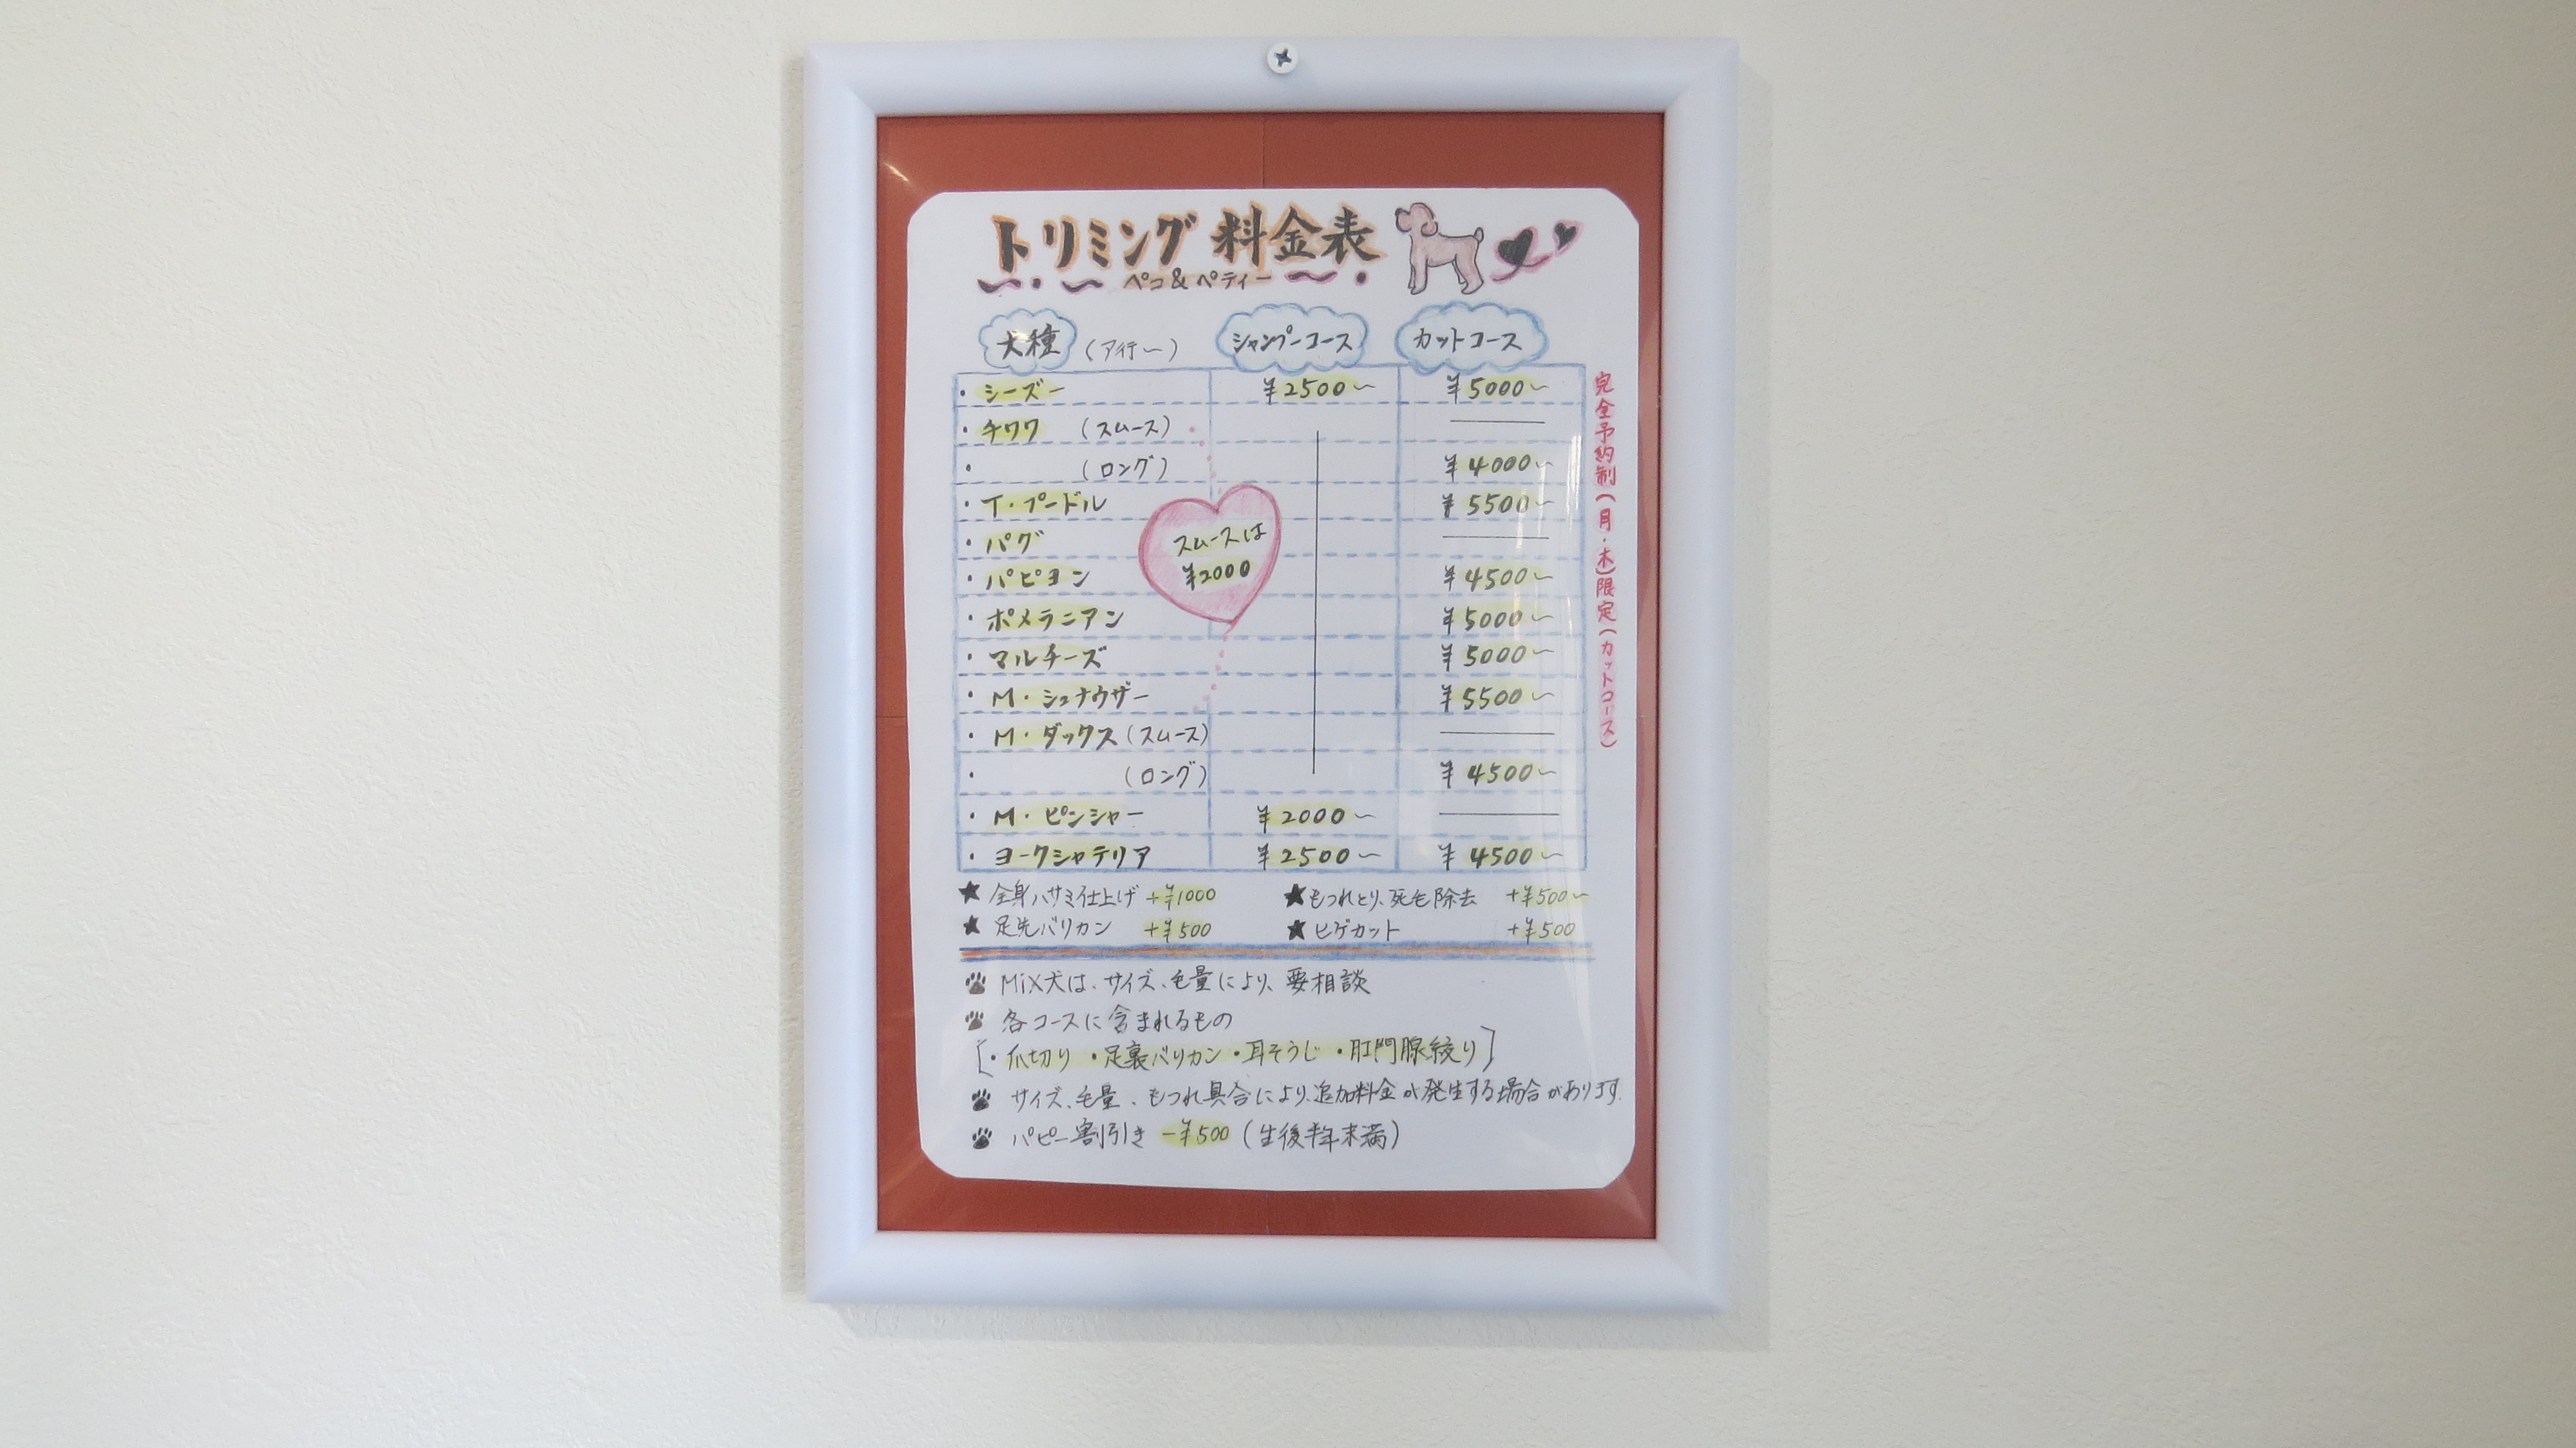 トリミング 料金表
ペコ&ペティー
犬種 (ア行〜) シャンプーコース カットコース
・シーズー ¥2500〜 ¥5000〜
・チワワ (スムース)
・ (ロング) ¥4000〜
・T・プードル ¥5500〜
・パグ
スムースは
¥2000
・パピヨン ¥4500〜
・ポメラニアン ¥5000〜
・マルチーズ ¥5000〜
・M・シュナウザー ¥5500〜
・M・ダックス (スムース)
・ (ロング) ¥4500〜
・M・ピンシャー ¥2000〜
・ヨークシャテリア ¥2500〜 ¥4500〜
完全予約制(月・木)限定(カットコース)
★ 全身ハサミ仕上げ +¥1000 ★もつれとり、死毛除去 +¥500〜
★ 足先バリカン +¥500 ★ ヒゲカット +¥500
MiX犬は、サイズ、毛量により、要相談
各コースに含まれるもの
[・爪切り ・足裏バリカン ・耳そうじ ・肛門腺絞り]
サイズ、毛量、もつれ具合により、追加料金が発生する場合があります.
パピー割引き -¥500 (生後半年未満)